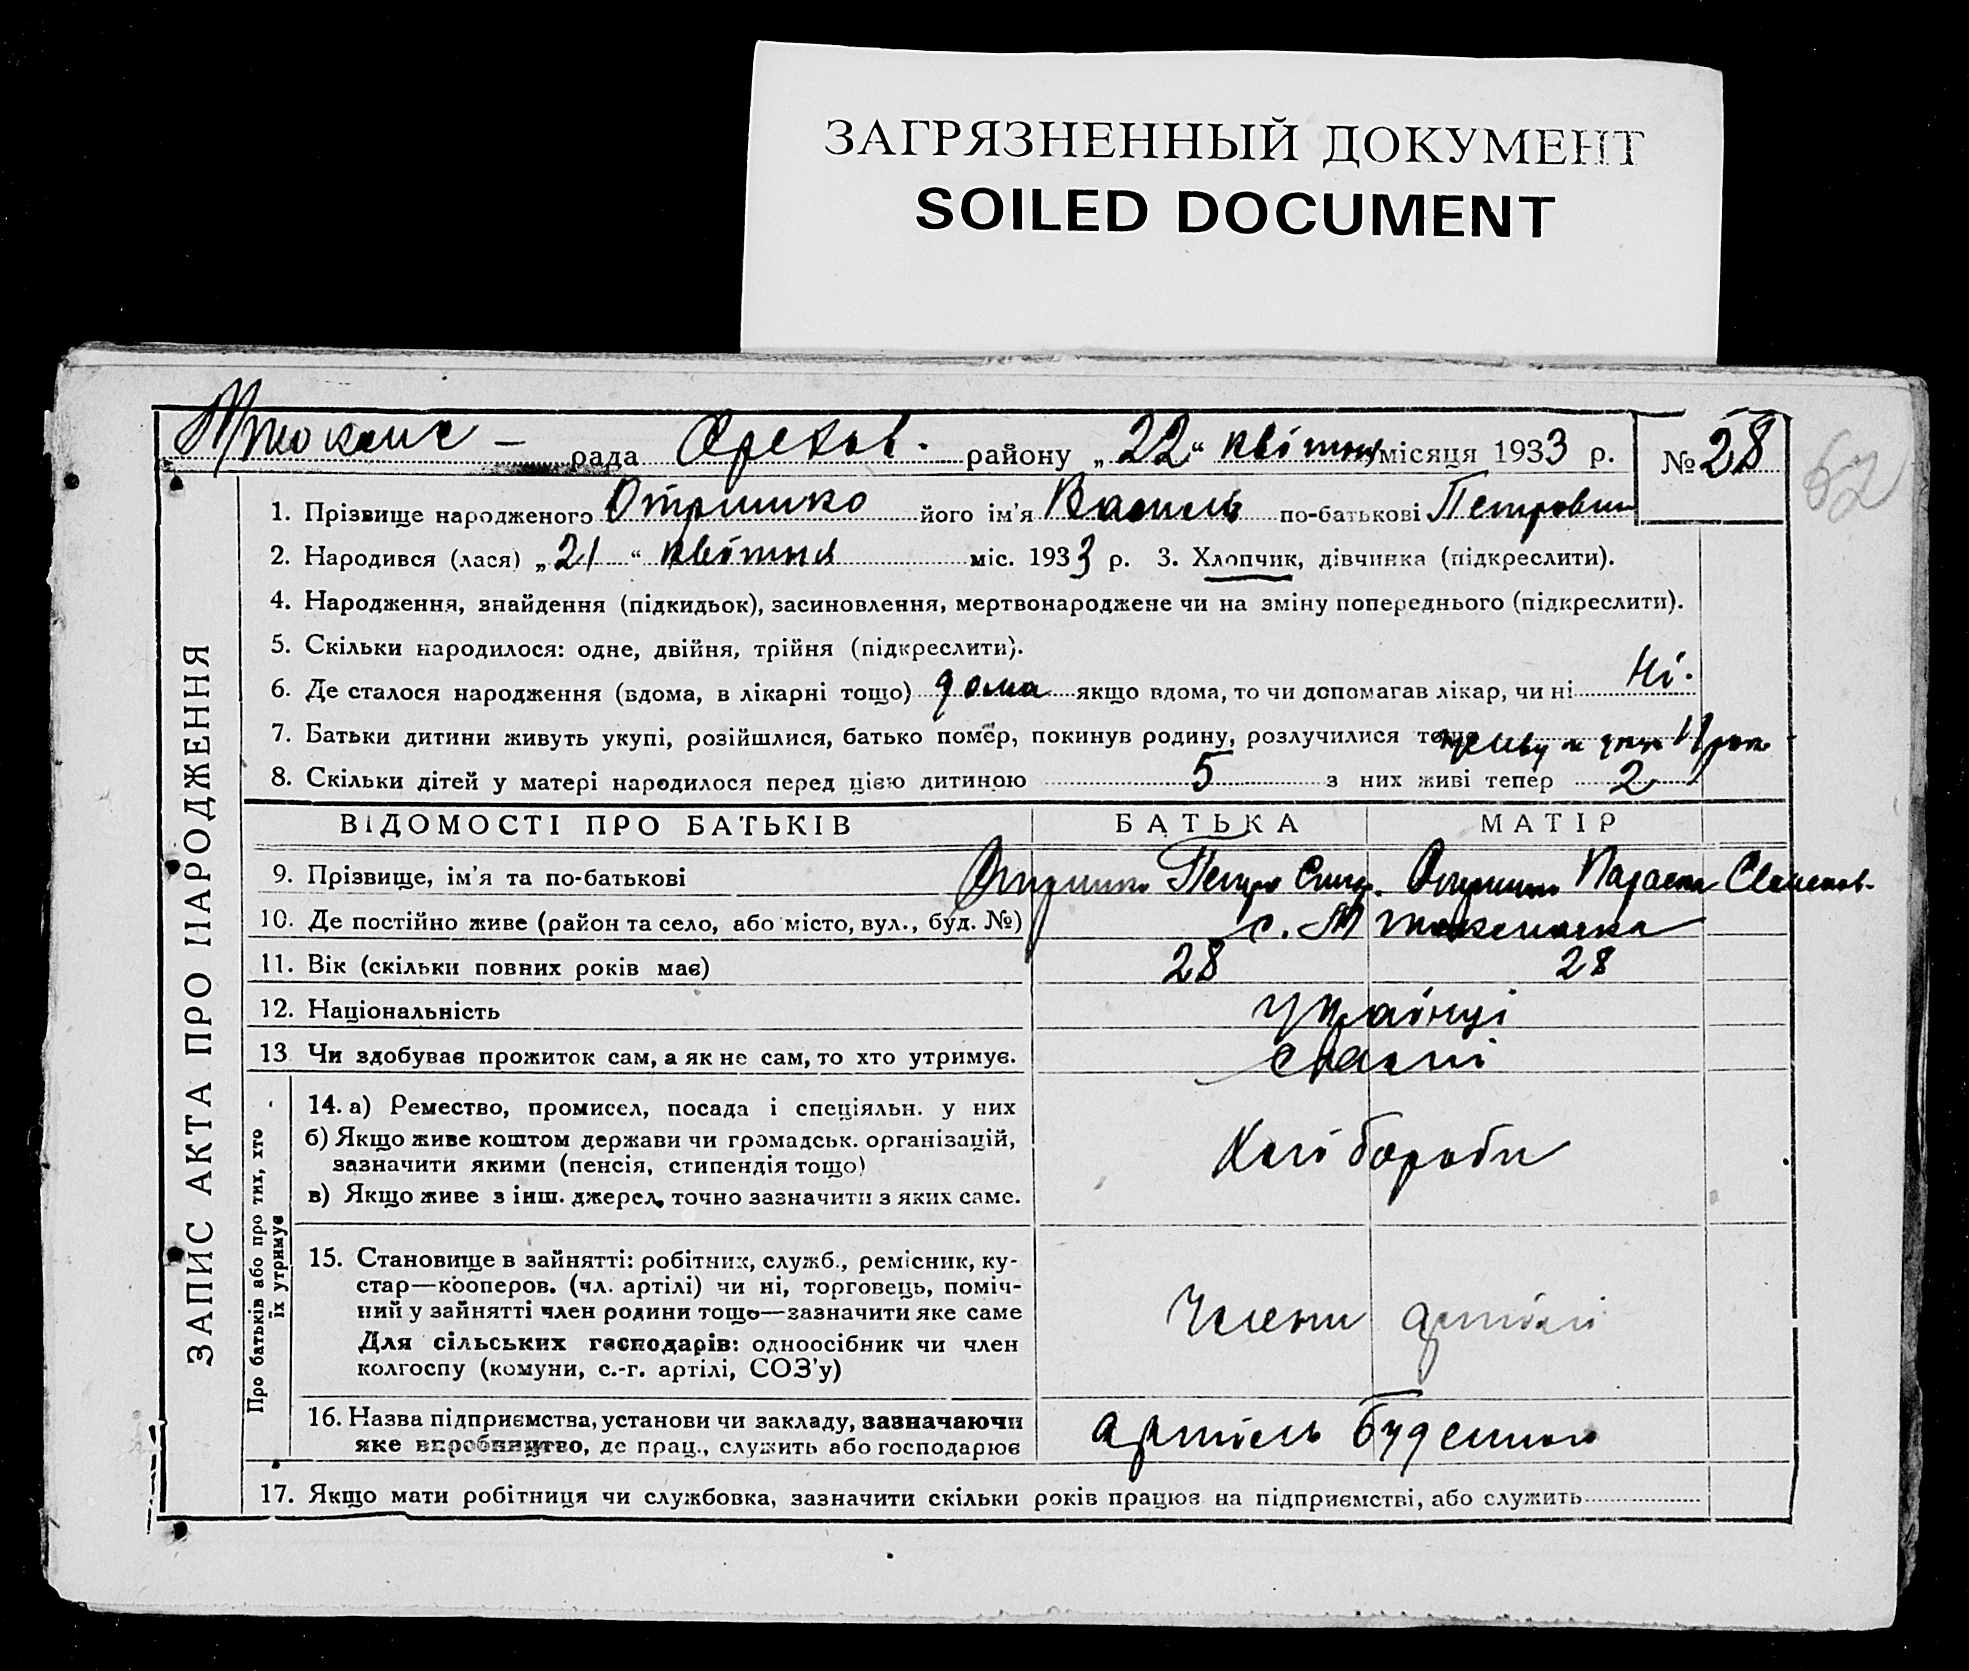 ЗАГРЯЗНЕННЫЙ ДОКУМЕНТ
SOILED DOCUMENT
рада Орехов. району „22“ квітня місяця 1933 р. № 28
62
1. Прізвище народженого Отришко його ім'я Василь по-батькові Петрович
2. Народився (лася) „21“ квітня міс. 1933 р. 3. Хлопчик, дівчинка (підкреслити).
4. Народження, знайдення (підкидьок), засиновлення, мертвонароджене чи на зміну попереднього (підкреслити).
5. Скільки народилося: одне, двійня, трійня (підкреслити).
6. Де сталося народження (вдома, в лікарні тощо) дома якщо вдома, то чи допомагав лікар, чи ні Ні.
7. Батьки дитини живуть укупі, розійшлися, батько помер, покинув родину, розлучилися тощо
8. Скільки дітей у матері народилося перед цією дитиною 5 з них живі тепер 2
ВІДОМОСТІ ПРО БАТЬКІВ БАТЬКА МАТІР
9. Прізвище, ім'я та по-батькові Отришко Петро Отришко Параска
10. Де постійно живе (район та село, або місто, вул., буд. №) с.
11. Вік (скільки повних років має) 28 28
12. Національність Українці
13 Чи здобував прожиток сам, а як не сам, то хто утримує.
14. а) Ремество, промисел, посада і спеціяльн. у них
б) Якщо живе коштом держави чи громадськ. організацій,
зазначити якими (пенсія, стипендія тощо)
в) Якщо живе з інш. джерел, точно зазначити з яких саме.
Хліборобы
15. Становище в зайнятті: робітник, служб., ремісник, ку-
стар—кооперов. (чл. артілі) чи ні, торговець, поміч-
ний у зайнятті член родини тощо—зазначити яке саме
Для сільських господарів: одноосібник чи член
колгоспу (комуни, с.-г. артілі, СОЗ'у)
Члени артілі
16. Назва підприємства, установи чи закладу, зазначаючи
яке виробництво, де прац., служить або господарює
артіль Буденного
17. Якщо мати робітниця чи службовка, зазначити скільки років працює на підприємстві, або служить
ЗАПИС АКТА ПРО НАРОДЖЕННЯ
Про батьків або про тих, хто
їх утримує